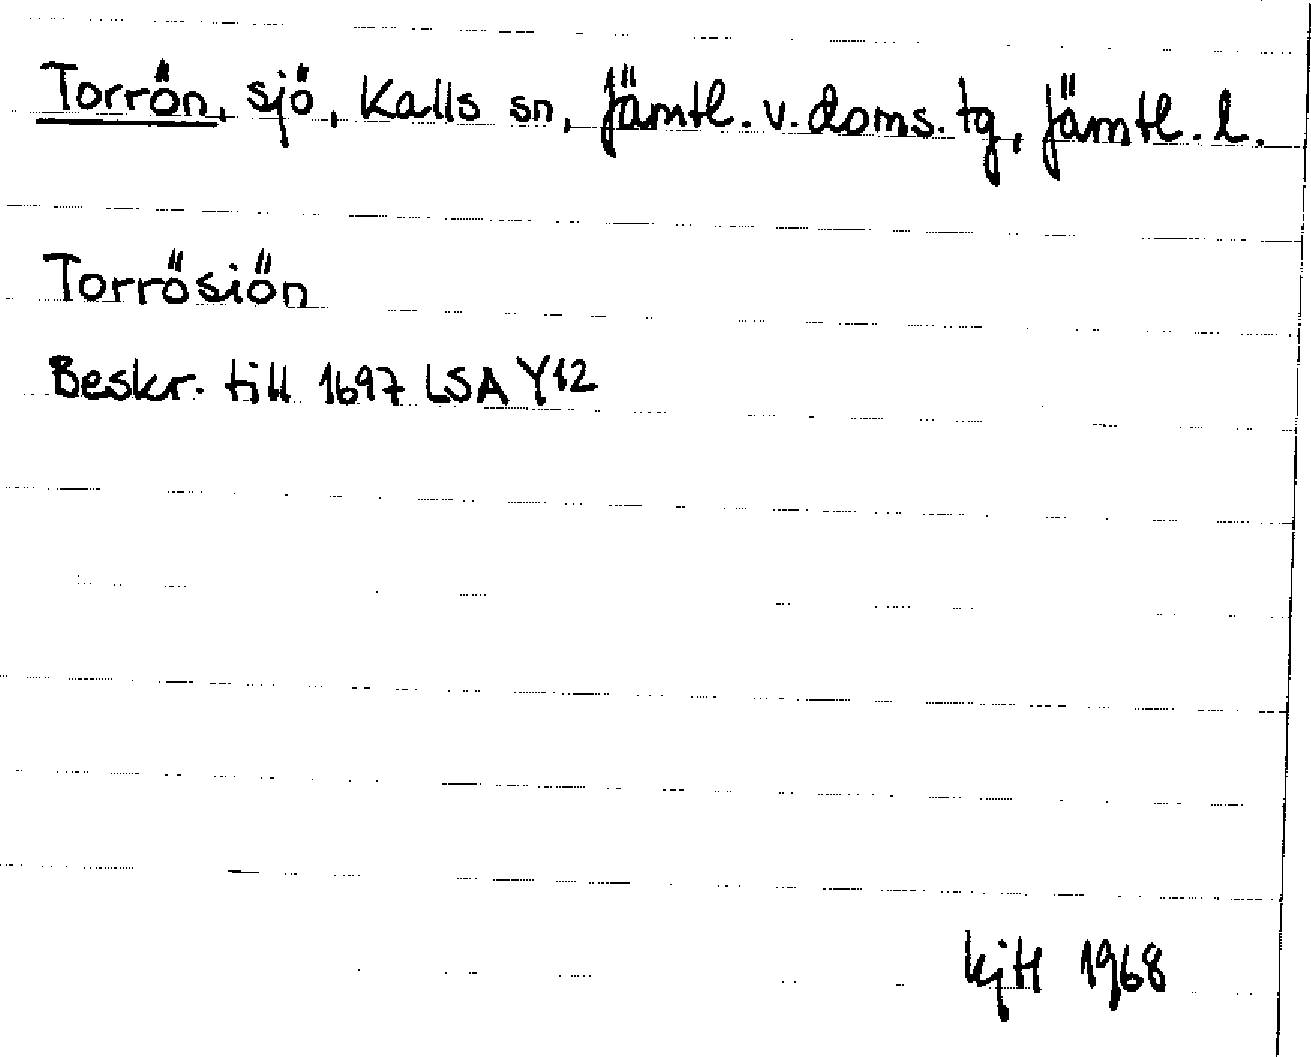 Torrön, sjö, Kalls sn, Jämtl. v. doms. tg, Jämtl. l.
Torrösiön
Beskr. till 1697 LSA Y12
1968